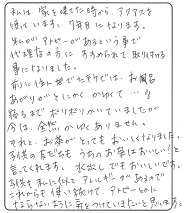 私は家を建てた時から、アクアスを
使っています。7年目になります。
私がアトピーがあるという事で
代理店の方にすすめられて取り付ける
事になりました。
前に住んでいた所では、お風呂
あがりがとにかくかゆくて…
寝るまでポリポリかいていましたが
今は、全然かゆくありません。
それと、お茶がとってもおいしくなりました。
子供の友だちもうちのお茶はおいしい!と
言ってくれます。水出しでもおいしいです。
子供も私に似てアレルギーがあるので
これからも使い続けて、アトピーなどに
ならないように気をつけていきたいと思います。